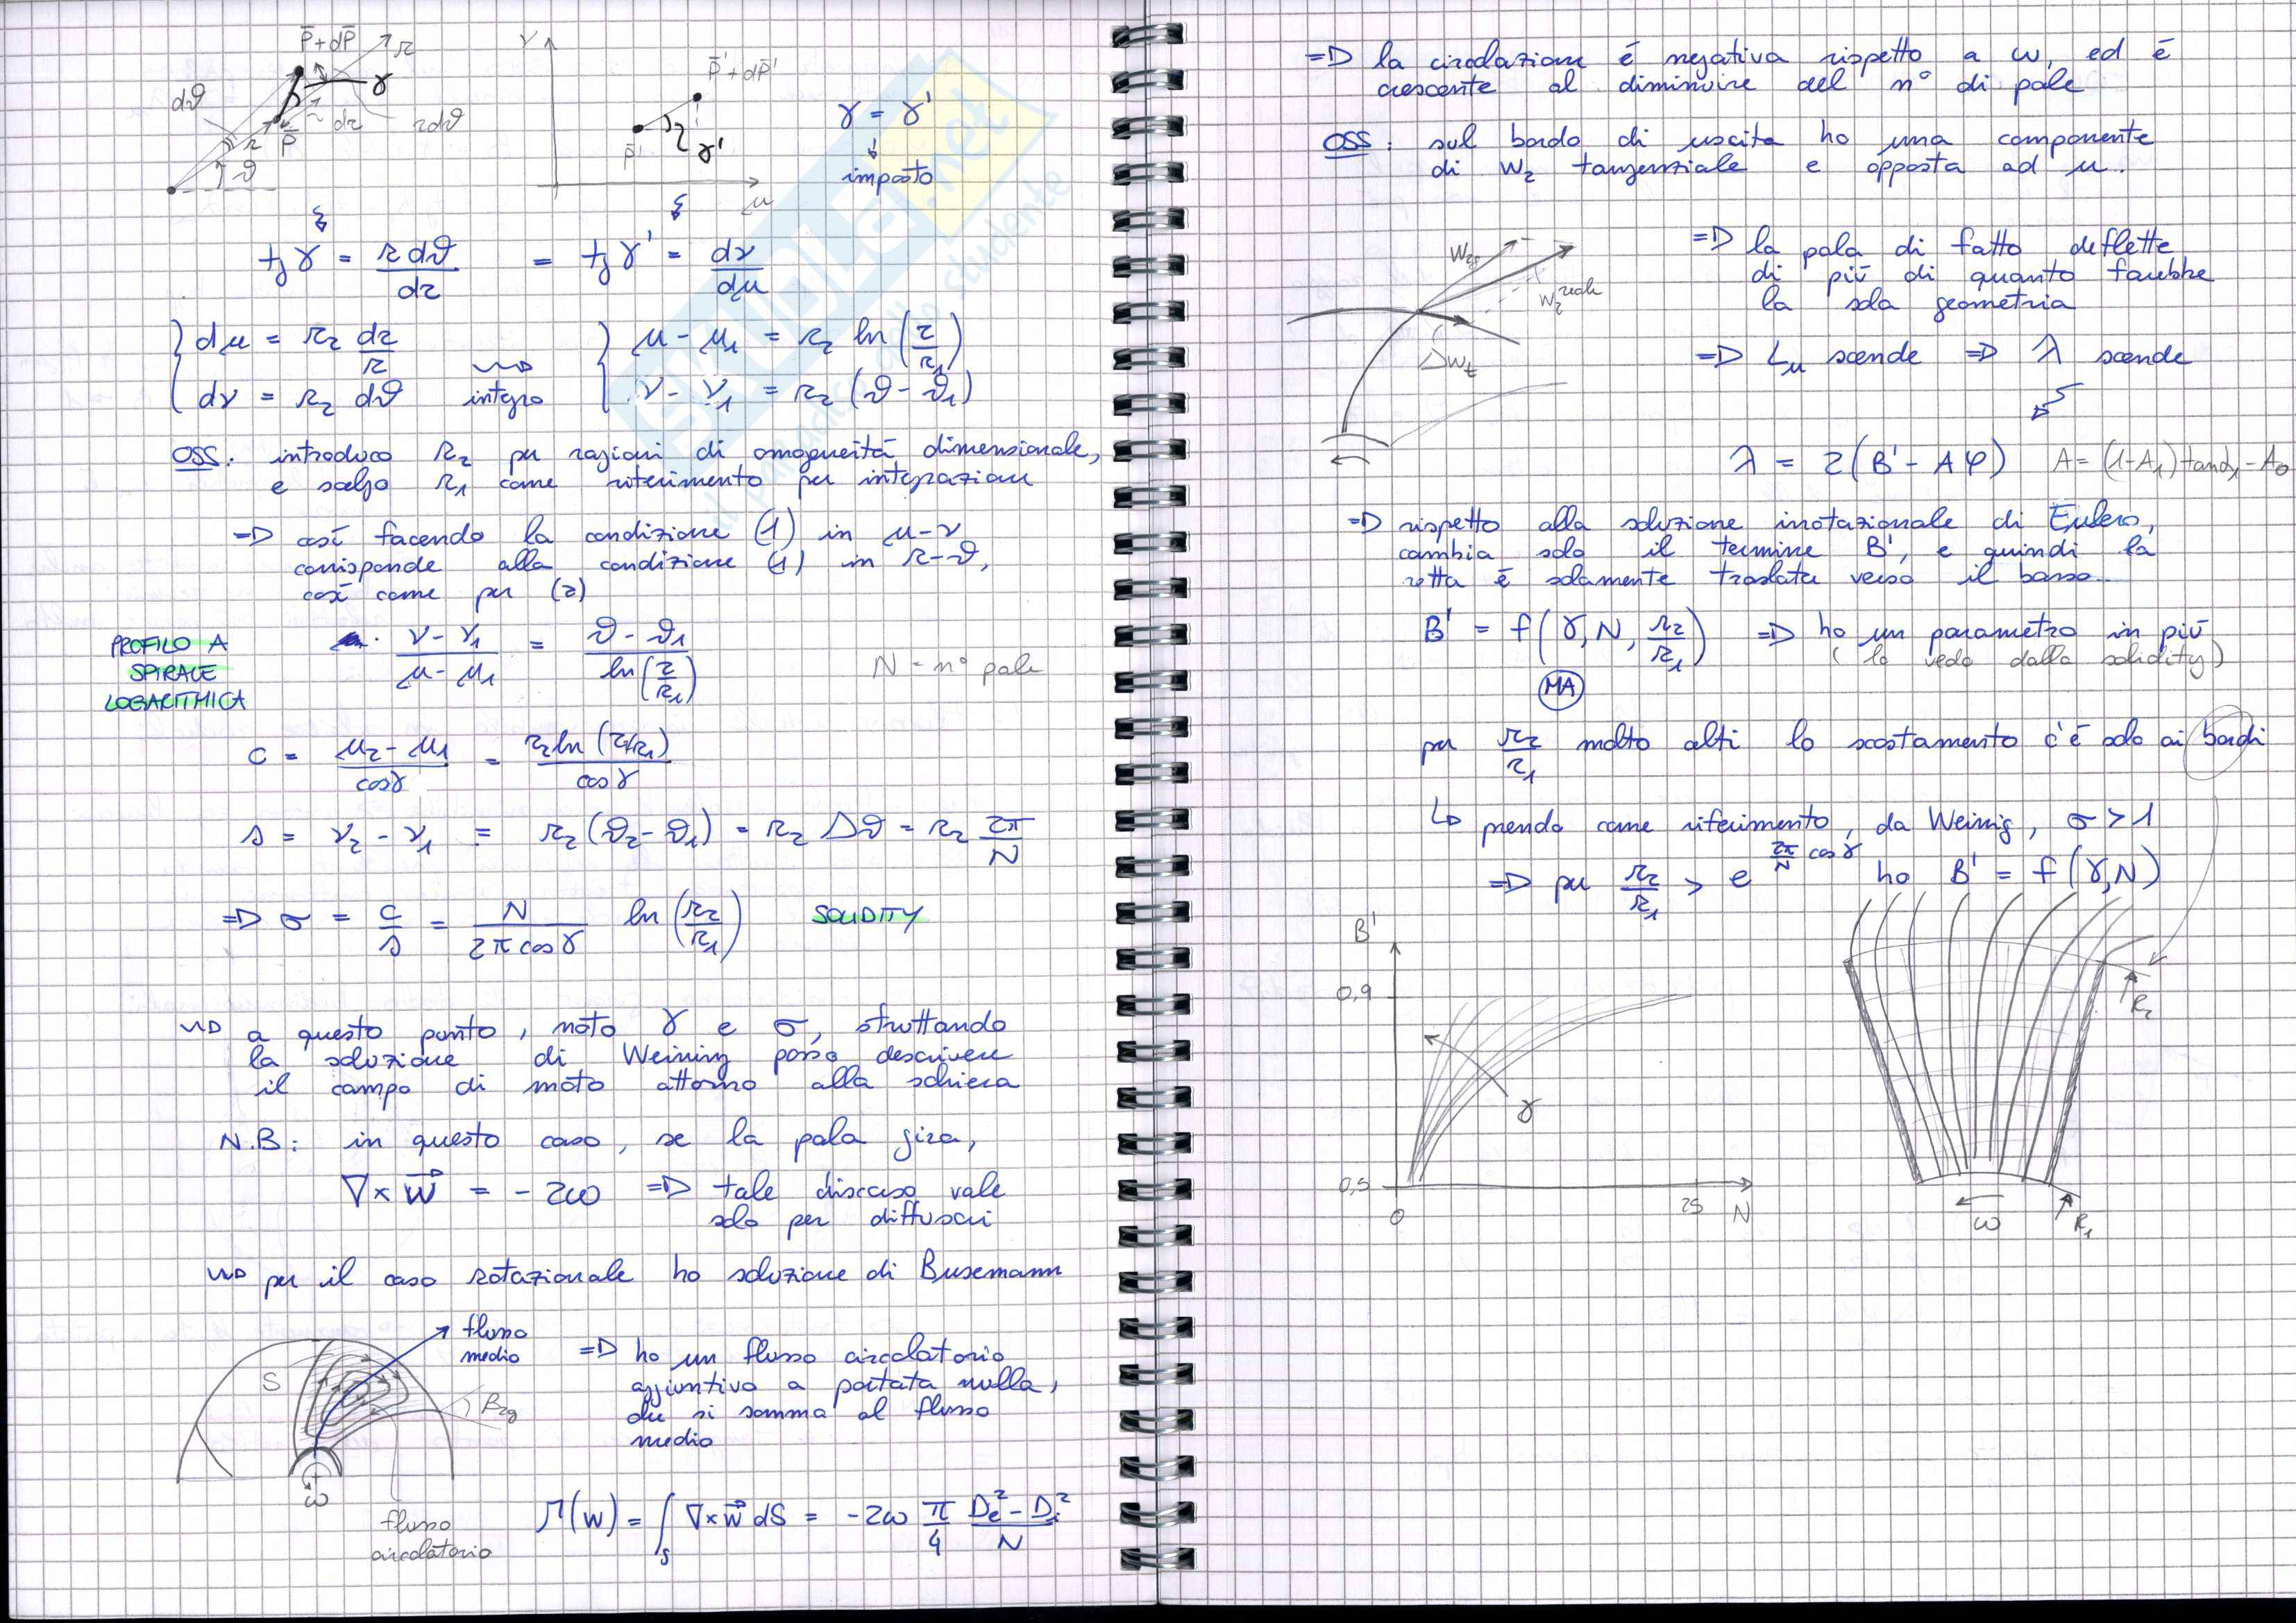 P̄+dP̄
r
γ
dϑ
dr
rdϑ
r
P̄
ϑ
ν
P̄'+dP̄'
P̄'
γ'
μ
γ = γ'
imposto
tg γ = r dϑ / dr = tg γ' = dν / dμ
{ dμ = r₂ dr/r
dν = r₂ dϑ
integro
{ μ - μ₁ = r₂ ln (r/r₁)
ν - ν₁ = r₂ (ϑ - ϑ₁)
OSS: introduco r₂ per ragioni di omogeneità dimensionale,
e scelgo r₁ come riferimento per integrazioni
=D così facendo la condizione (1) in μ-ν
corrisponde alla condizione (1) in r-ϑ,
così come per (2)
PROFILO A
SPIRALE
LOGARITMICA
(ν - ν₁)/(μ - μ₁) = (ϑ - ϑ₁)/ln(r/r₁)
N = n° pale
c = (μ₂ - μ₁)/cosγ = r₂ ln (r₂/r₁)/cosγ
s = ν₂ - ν₁ = r₂ (ϑ₂ - ϑ₁) = r₂ Δϑ = r₂ 2π/N
=D σ = c/s = N/(2π cosγ) ln (r₂/r₁) SOLIDITY
a questo punto, noto γ e σ, sfruttando
la soluzione di Weining posso descrivere
il campo di moto attorno alla schiera
N.B: in questo caso, se la pala gira,
∇× w⃗ = - 2ω =D tale discorso vale
solo per diffusori
per il caso rotazionale ho soluzione di Busemann
flusso
medio
S
β₂g
ω
flusso
circolatorio
=D ho un flusso circolatorio
aggiuntivo a portata nulla,
che si somma al flusso
medio
Γ(w) = ∫s ∇×w⃗ dS = -2ω π/4 (De² - Di²)/N
=D la circolazione é negativa rispetto a ω, ed é
crescente al diminuire del n° di pale
OSS: sul bordo di uscita ho una componente
di w₂ tangenziale e opposta ad u.
w₂
w₂ reale
Δwt
=D la pala di fatto deflette
di più di quanto farebbe
la sola geometria
=D Lu scende =D λ scende
λ = 2(B' - Aφ) A = (1-A₁)tanα₁ - A₀
=D rispetto alla soluzione irrotazionale di Eulero,
cambia solo il termine B', e quindi la
retta è solamente traslata verso il basso
B' = f(γ, N, r₂/r₁) =D ho un parametro in più
(lo vedo dalla solidity)
MA
per r₂/r₁ molto alti lo scostamento c'é solo ai bordi
prendo come riferimento, da Weinig, σ > 1
=D per r₂/r₁ > e^(2π/N cosγ) ho B' = f (γ, N)
B'
0,9
0,5
0
25
N
γ
R₂
R₁
ω